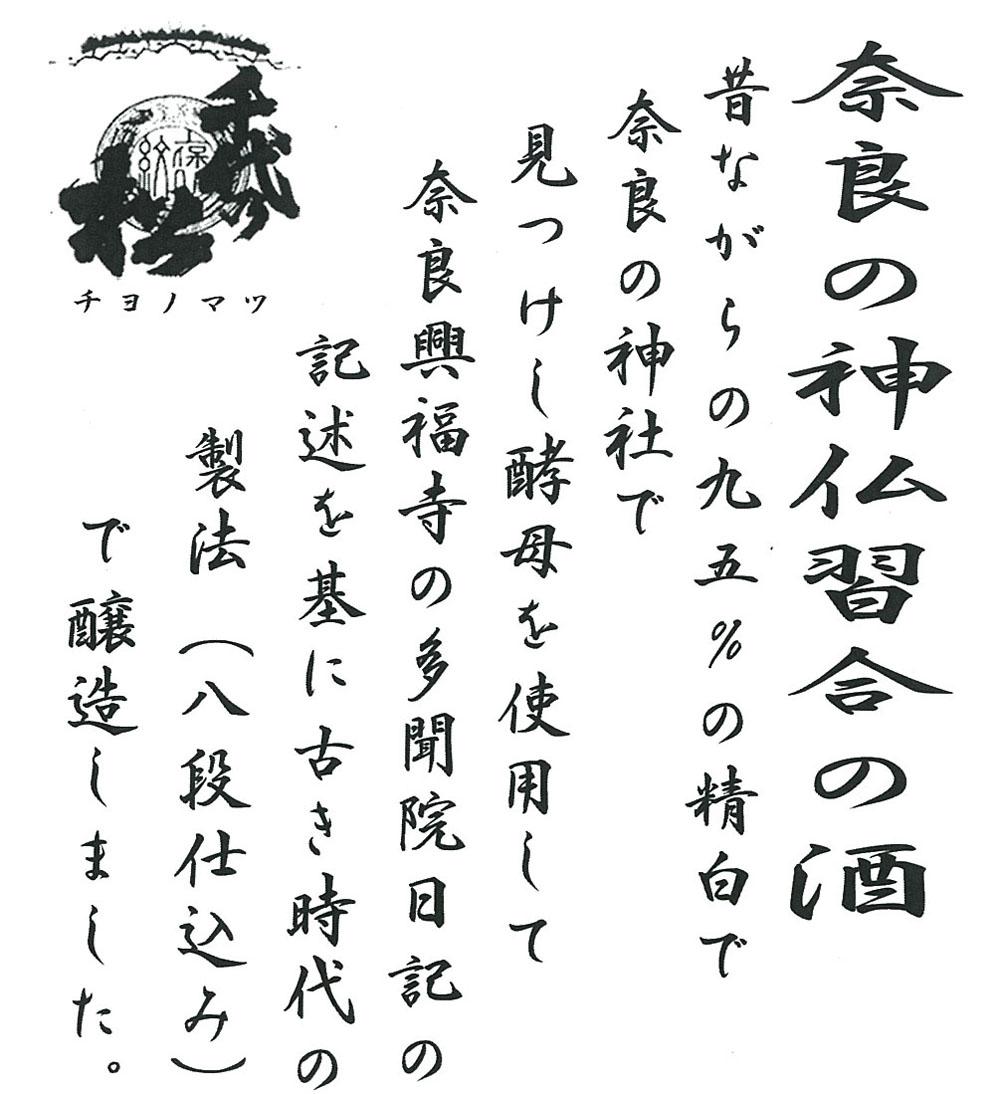 奈良の神仏習合の酒
昔ながらの九五％の精白で
奈良の神社で
見つけし酵母を使用して
奈良興福寺の多聞院日記の
記述を基に古き時代の
製法（八段仕込み）
で醸造しました。
千代の松
チヨノマツ